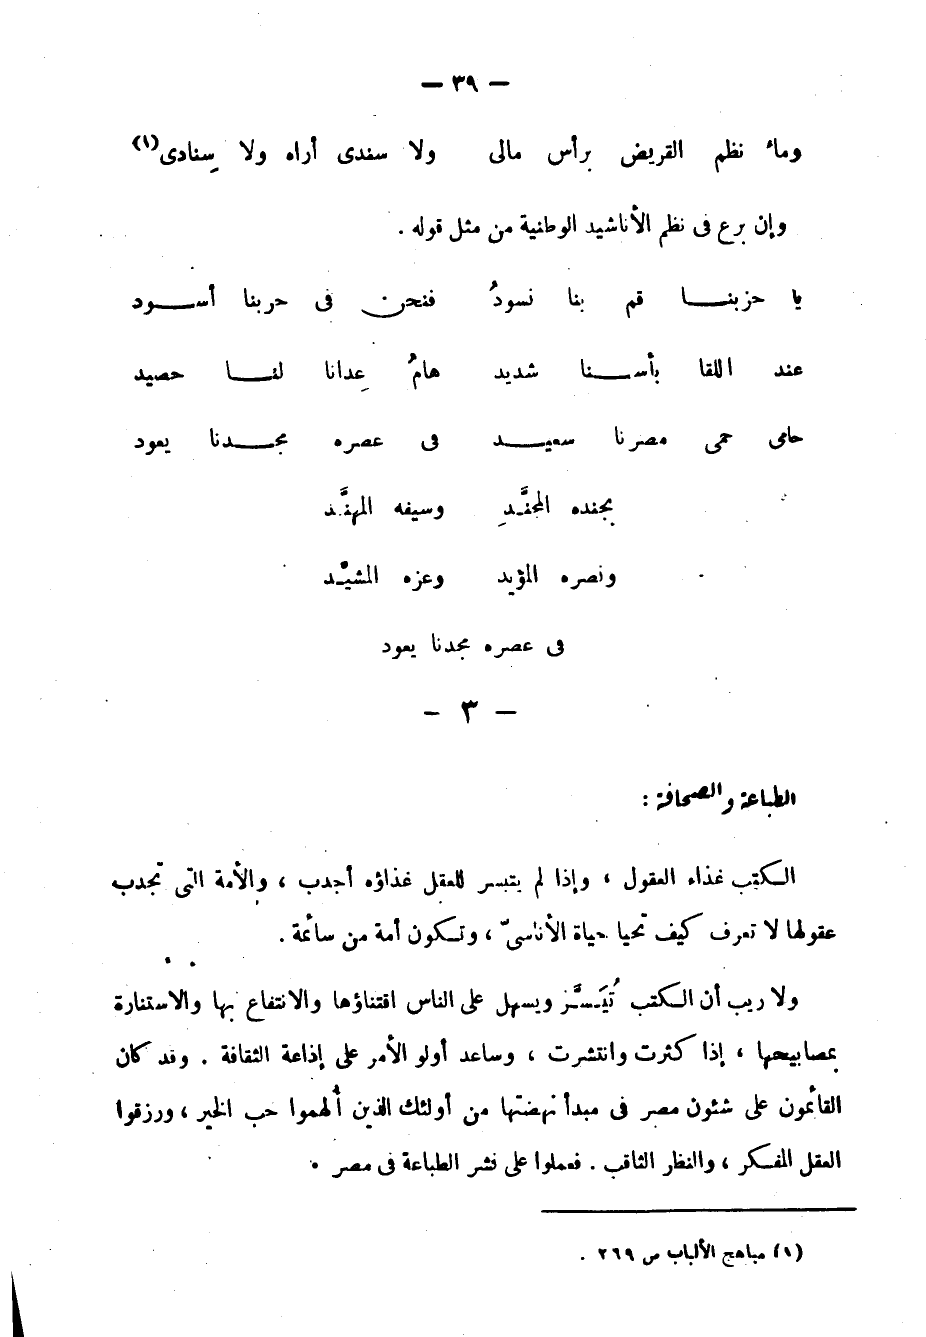 — ٣٩ —
وما نظم القريض برأس مالى ولا سندى أراه ولا سِنادى(١)
وإن برع فى نظم الأناشيد الوطنية من مثل قوله .
يا حزبنـــا قم بنا نسودُ فنحن فى حربنا أســـود
عند اللقا بأســـنا شديد هامُ عِدانا لنـــا حصيد
حامى حمى مصرنا سعيـــد فى عصره مجـــدنا يعود
بجنده المجنَّـدِ وسيفه المهنَّـد
ونصره المؤيد وعزه المشيَّـد
فى عصره مجدنا يعود
— ٣ —
الطباعة والصحافة :
الـكتب غذاء العقول ، وإذا لم يتيسر للعقل غذاؤه أجدب ، والأمة التى تجدب
عقولها لا تعرف كيف تحيا حياة الأناسىّ ، وتـكون أمة من سائمة .
ولا ريب أن الـكتب تُيَـسَّـر ويسهل على الناس اقتناؤها والانتفاع بها والاستنارة
بمصابيحها ، إذا كثرت وانتشرت ، وساعد أولو الأمر على إذاعة الثقافة . وقد كان
القائمون على شئون مصر فى مبدأ نهضتها من أولئك الذين أُلهموا حب الخير ، ورزقوا
العقل المفـكر ، والنظر الثاقب . فعملوا على نشر الطباعة فى مصر .
(١) مباهج الألباب ص ٢٦٩ .